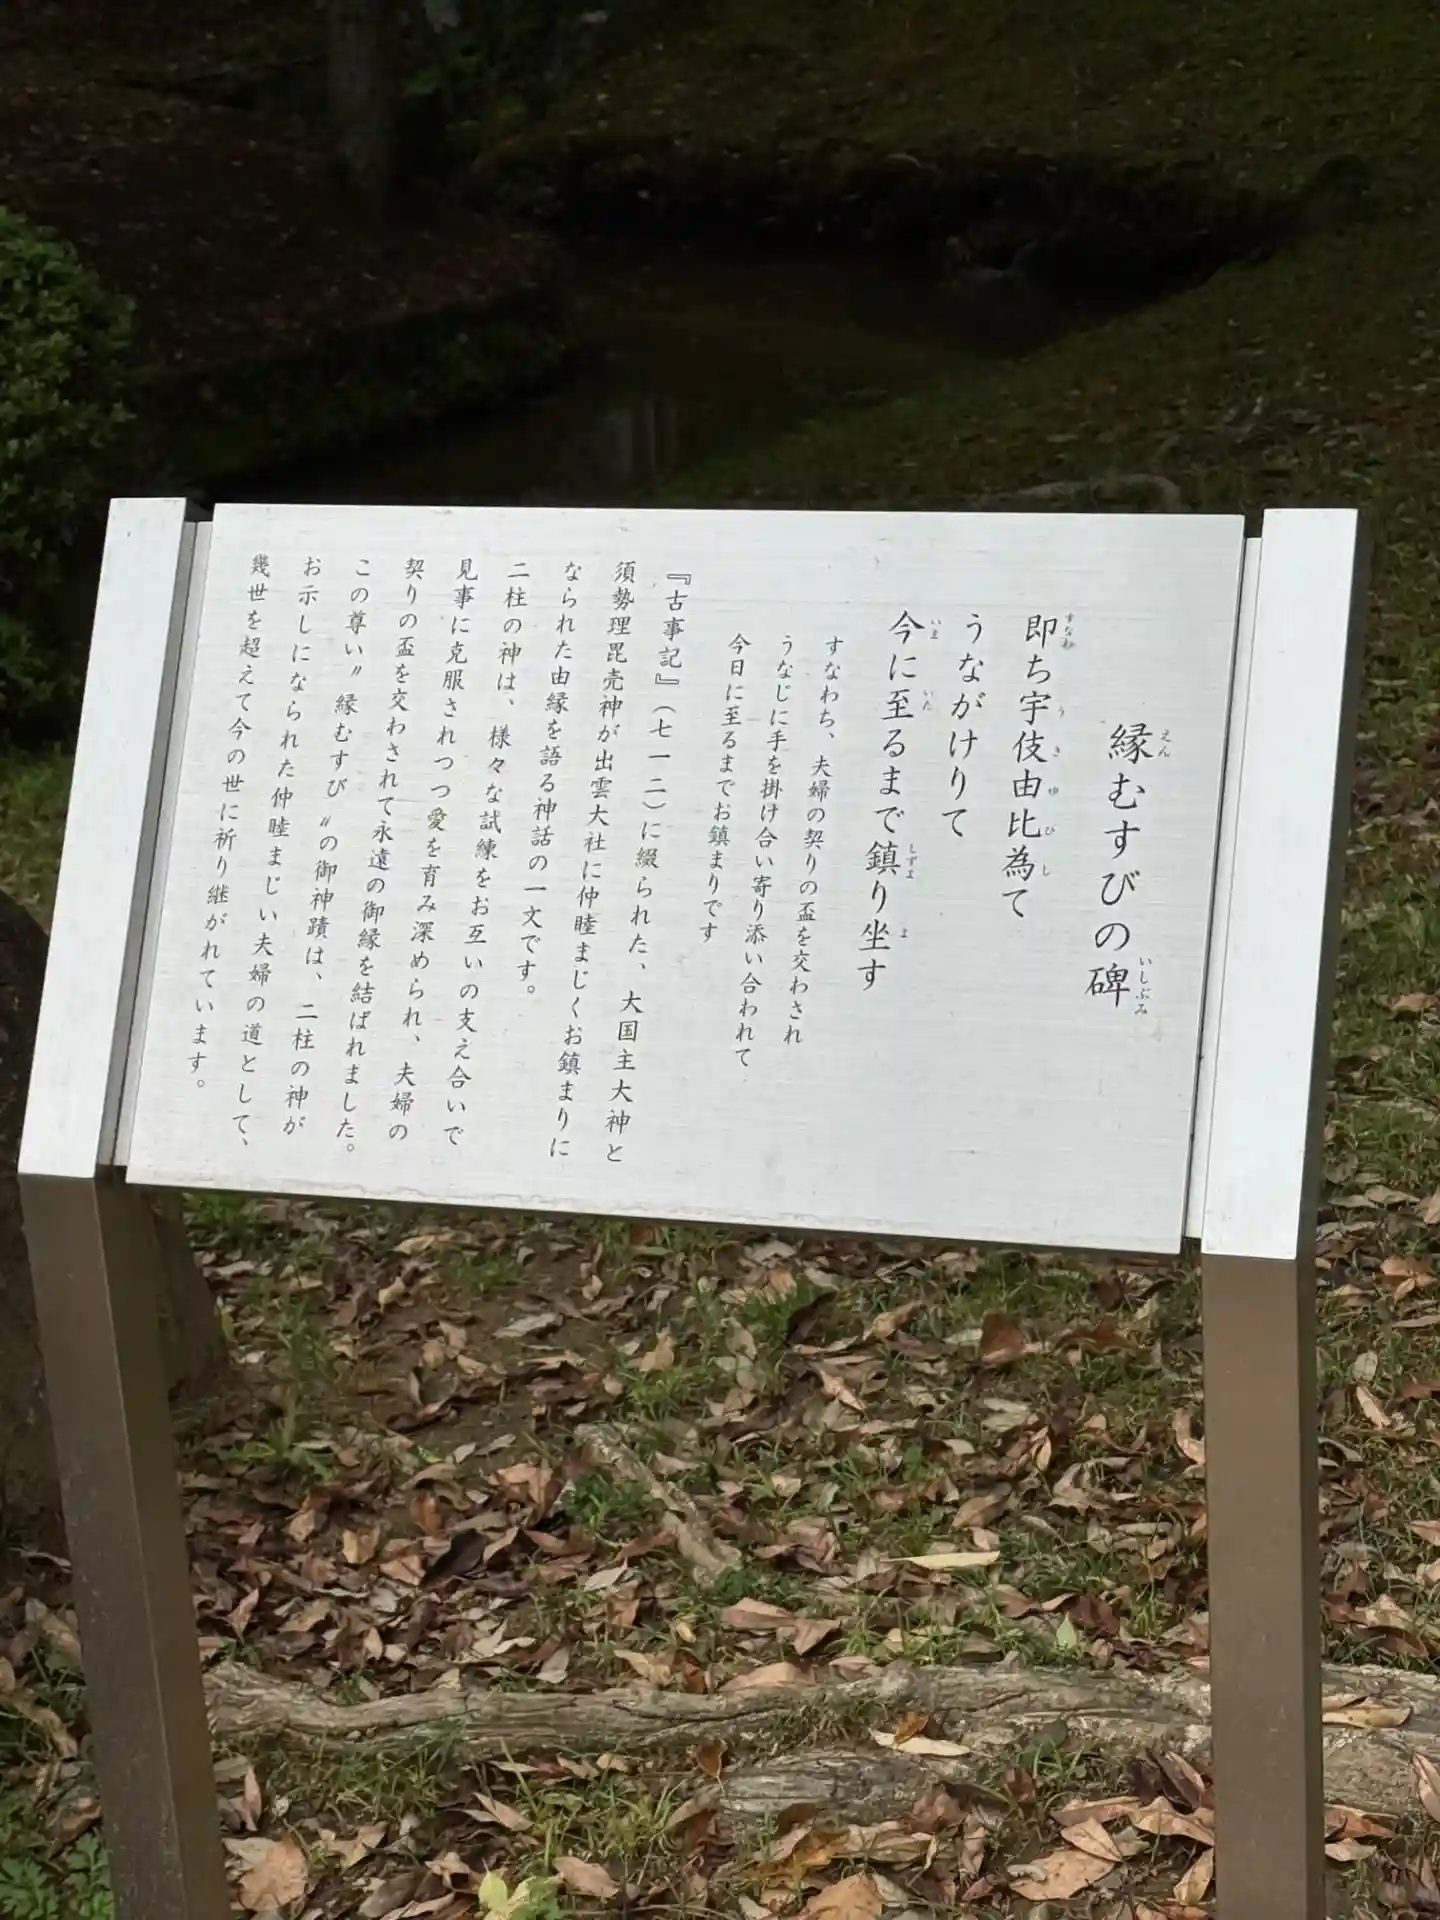 縁むすびの碑
えん
いしぶみ
即ち宇伎由比為て
すなわ
うきゆひし
うながけりて
今に至るまで鎮り坐す
いま
いた
しずま
ま
すなわち、夫婦の契りの盃を交わされ
うなじに手を掛け合い寄り添い合われて
今日に至るまでお鎮まりです
『古事記』（七一二）に綴られた、大国主大神と
須勢理毘売神が出雲大社に仲睦まじくお鎮まりに
なられた由縁を語る神話の一文です。
二柱の神は、様々な試練をお互いの支え合いで
見事に克服されつつ愛を育み深められ、夫婦の
契りの盃を交わされて永遠の御縁を結ばれました。
この尊い〝縁むすび〟の御神蹟は、二柱の神が
お示しになられた仲睦まじい夫婦の道として、
幾世を超えて今の世に祈り継がれています。